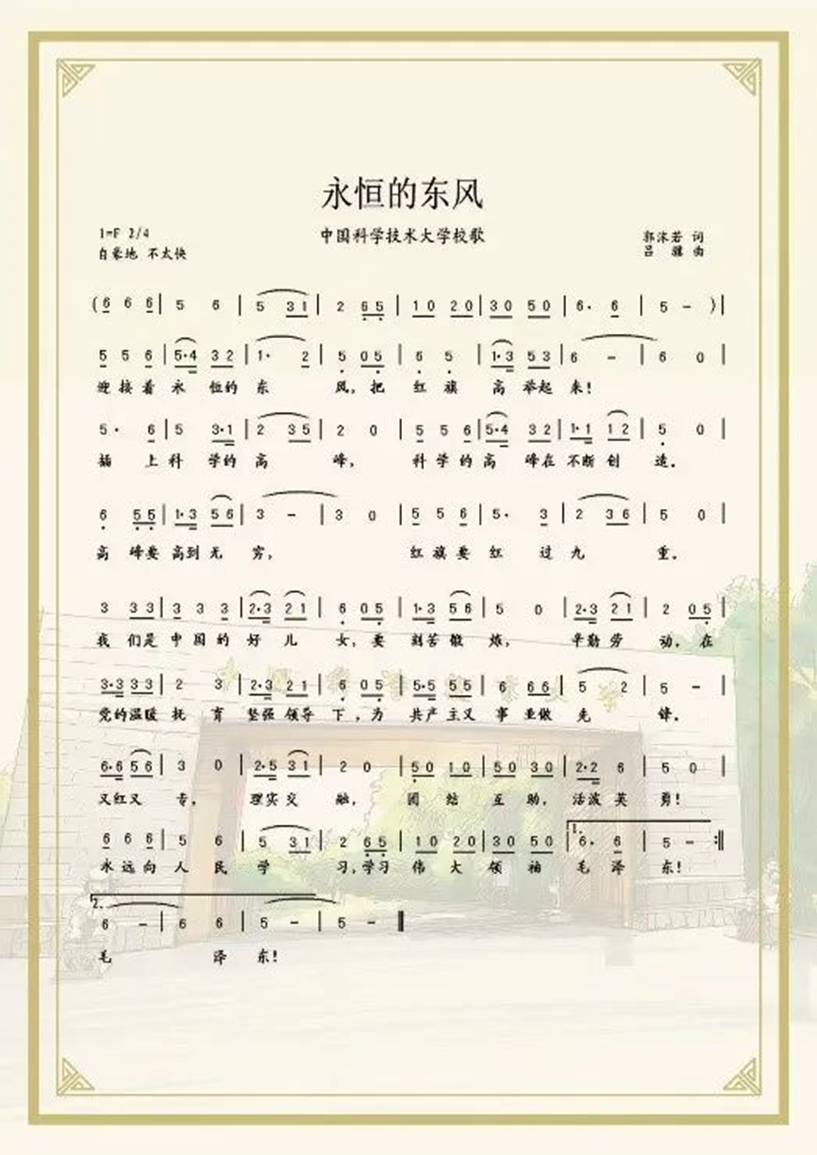 永恒的东风
1=F 2/4
中国科学技术大学校歌
郭沫若 词
自豪地 不太快
吕骥 曲
(6 6 6 | 5 6 | 5 31 | 2 65 | 10 20 | 30 50 | 6· 6 | 5 - )|
5 5 6 | 5·4 32 | 1· 2 | 5 05 | 6 5 | 1·3 53 | 6 - | 6 0 |
迎接着永 恒的东 风,把 红 旗 高 举起 来!
5· 6 | 5 3·1 | 2 35 | 2 0 | 5 5 6 | 5·4 32 | 1·1 12 | 5 0 |
插 上科 学的高 峰, 科学的高 峰在不断创 造。
6 55 | 1·3 56 | 3 - | 3 0 | 5 5 6 | 5· 3 | 2 36 | 5 0 |
高 峰要高到无 穷, 红旗要红 过九 重。
3 33 | 3 3 3 | 2·3 21 | 6 05 | 1·3 56 | 5 0 | 2·3 21 | 2 05 |
我 们是中国的好 儿 女,要 刻苦锻 炼, 辛勤劳 动,在
3·3 33 | 2 3 | 2·3 21 | 6 05 | 5·5 55 | 6 66 | 5 2 | 5 - |
党的温暖抚 育 坚强领导下,为 共产主义事 业做先 锋。
6·6 56 | 3 0 | 2·5 31 | 2 0 | 50 10 | 50 30 | 2·2 6 | 5 0 |
又红又 专, 理实交 融, 团 结 互 助, 活泼英 勇!
6 6 6 | 5 6 | 5 31 | 2 65 | 10 20 | 30 50 | 1. 6· 6 | 5 - :‖
永远向人 民 学 习,学习 伟 大 领 袖 毛 泽 东!
2. 6 - | 6 6 | 5 - | 5 - ‖
毛 泽 东!